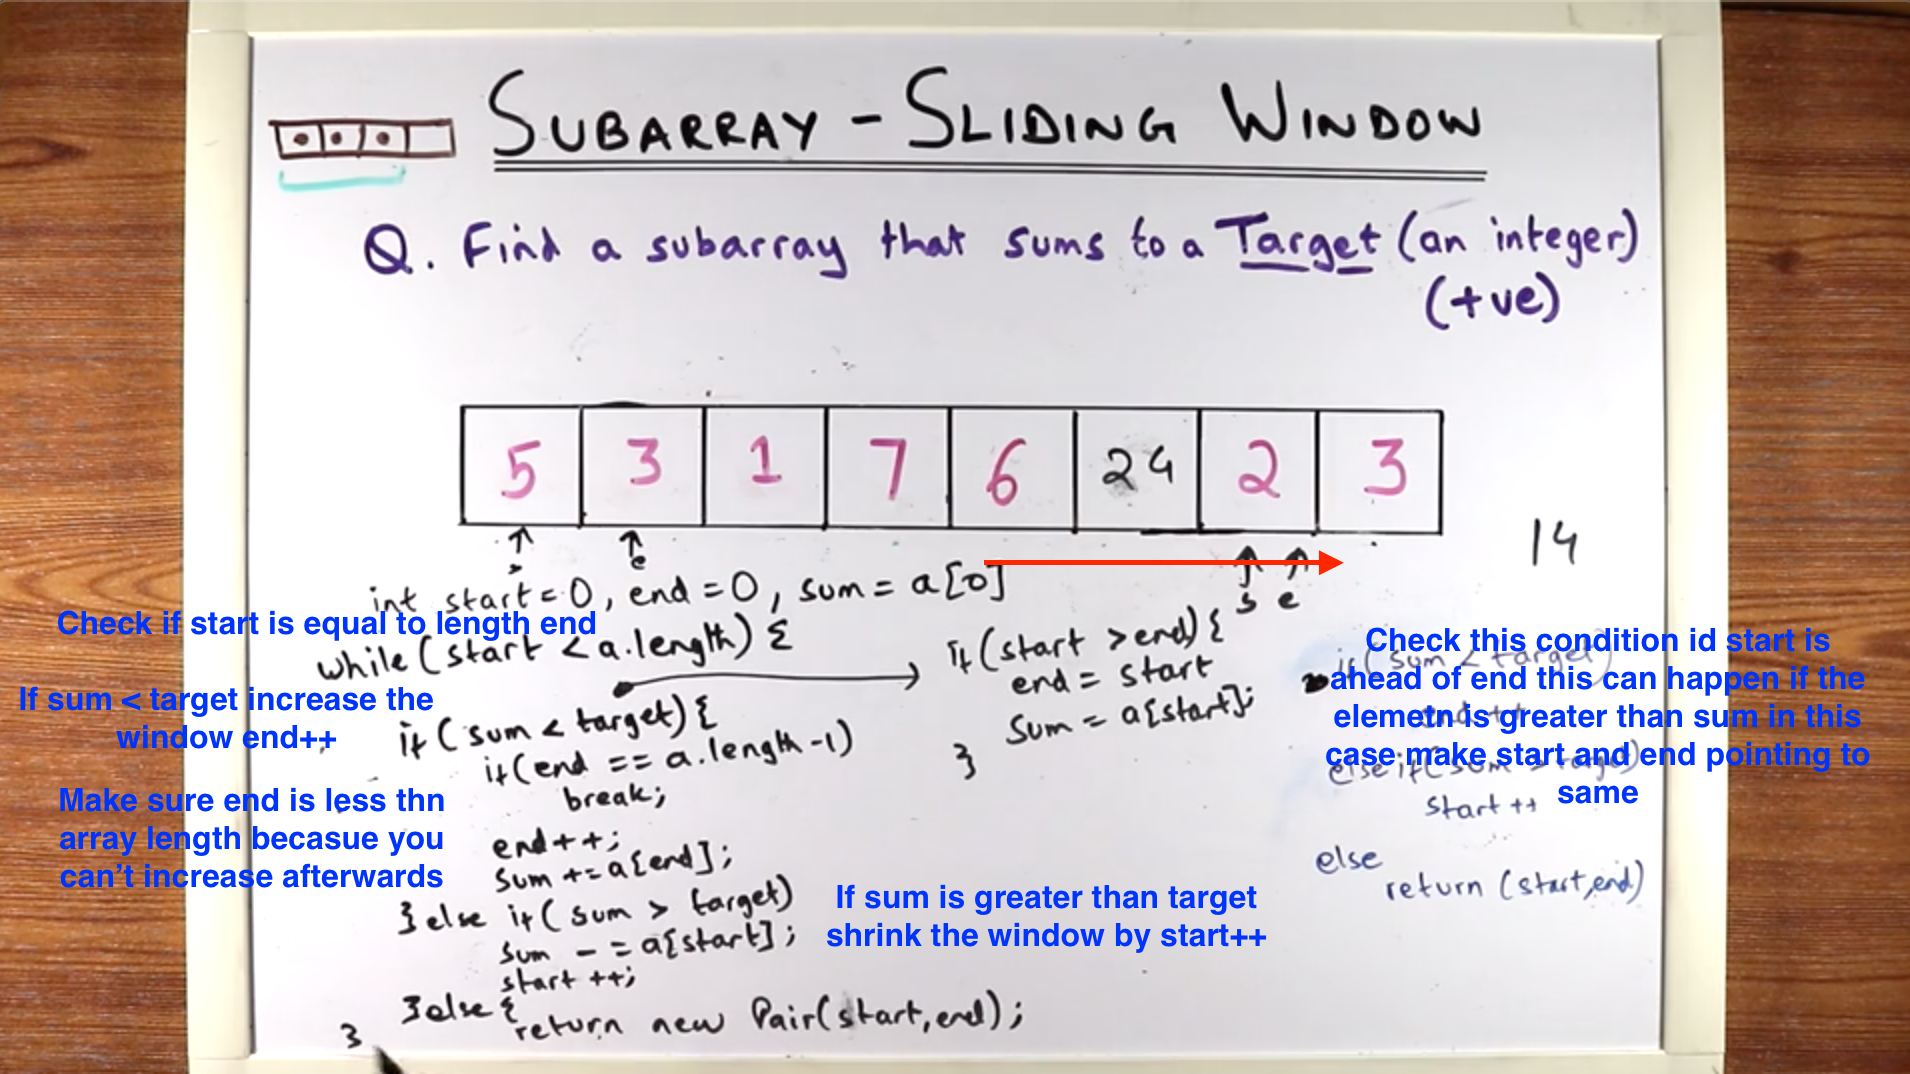 SUBARRAY - SLIDING WINDOW
Q. Find a subarray that sums to a Target (an integer)
(+ve)
5 3 1 7 6 24 2 3
14
s e
s e
int start = 0, end = 0, sum = a[0]
Check if start is equal to length end
while (start < a.length) {
If sum < target increase the
window end++
if (sum < target) {
if (end == a.length -1)
break;
Make sure end is less thn
array length becasue you
can't increase afterwards
end++;
sum += a[end];
} else if ( sum > target)
sum -= a[start];
start ++;
} else {
return new Pair(start, end);
}
If sum is greater than target
shrink the window by start++
if (start > end) {
end = start
sum = a[start];
}
Check this condition id start is
ahead of end this can happen if the
elemetn is greater than sum in this
case make start and end pointing to
same
if (sum < target)
end ++
else if (sum > target)
start ++
else
return (start, end)